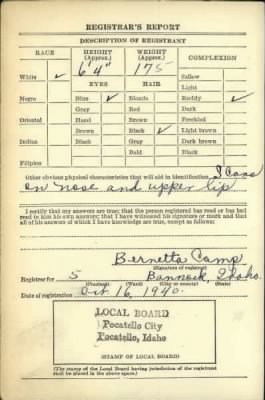 REGISTRAR'S REPORT
DESCRIPTION OF REGISTRANT
RACE HEIGHT (Approx.) WEIGHT (Approx.) COMPLEXION
White ✓ 6'4" 175 Sallow
EYES HAIR Light
Negro Blue ✓ Blonde Ruddy ✓
Gray Red Dark
Oriental Hazel Brown Freckled
Brown Black ✓ Light brown
Indian Black Gray Dark brown
Bald Black
Filipino
Other obvious physical characteristics that will aid in identification
on nose and upper lip
I certify that my answers are true; that the person registered has read or has had
read to him his own answers; that I have witnessed his signature or mark and that
all of his answers of which I have knowledge are true, except as follows:
Bernetta Camp
(Signature of registrar)
Registrar for 5 Bannock, Idaho.
(Precinct) (Ward) (City or county) (State)
Date of registration Oct 16, 1940.
LOCAL BOARD
Pocatello City
Pocatello, Idaho
(STAMP OF LOCAL BOARD)
(The stamp of the Local Board having jurisdiction of the registrant
shall be placed in the above space.)